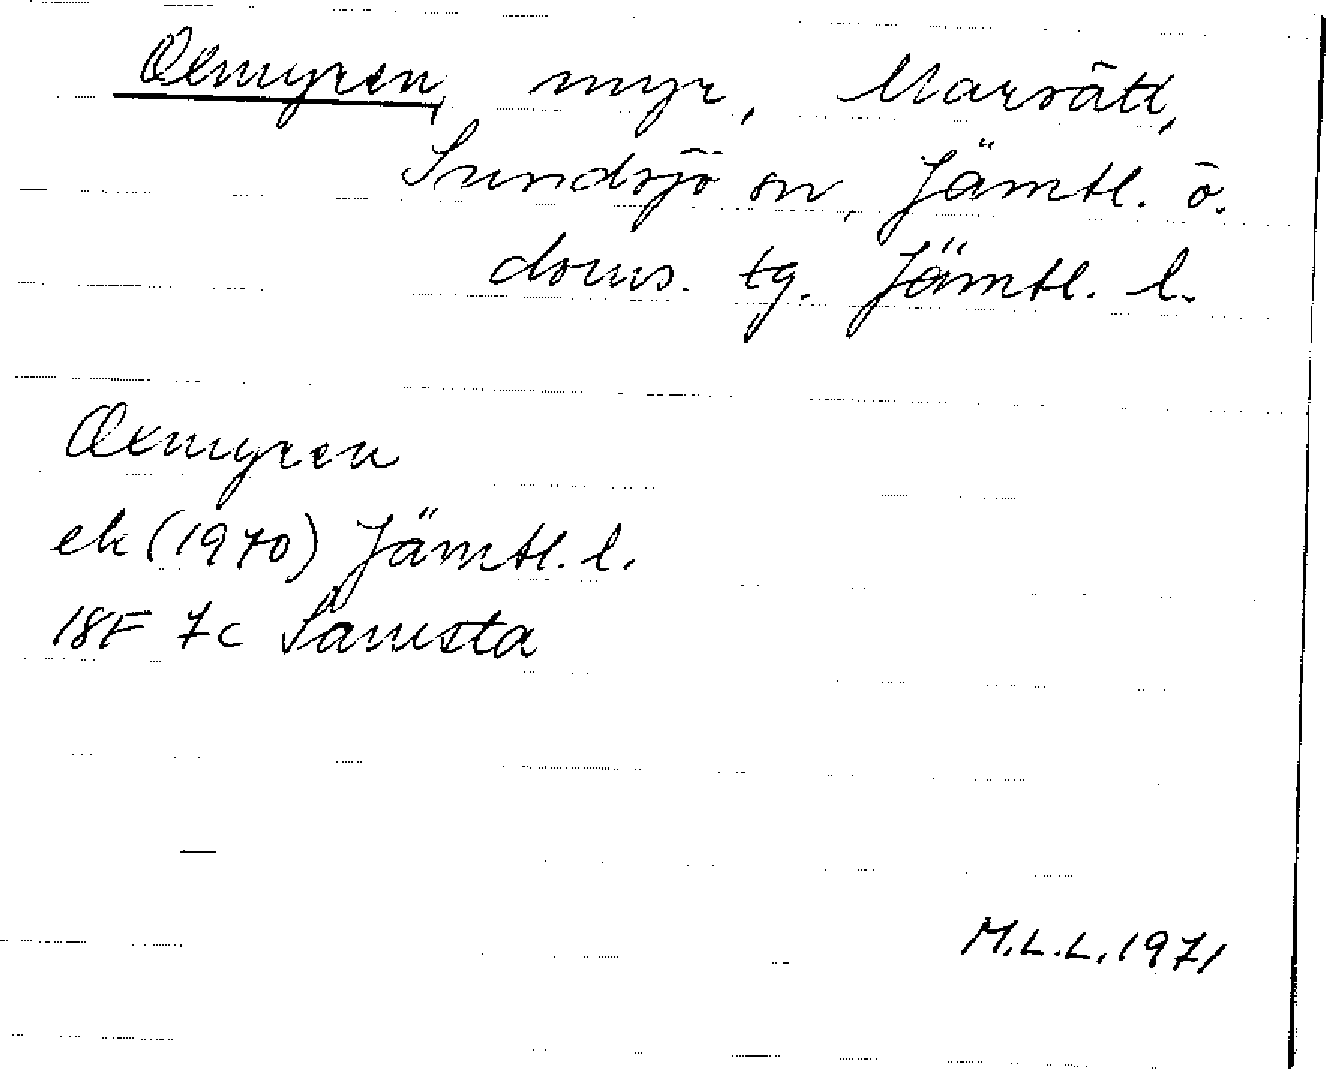 Olmyren, myr, Marsätt,
Sundsjö sn, Jämtl. ö.
doms. tg. Jämtl. l.
Olmyren
ek (1970) Jämtl. l.
18F 7c Sånsta
M.L.L. 1971